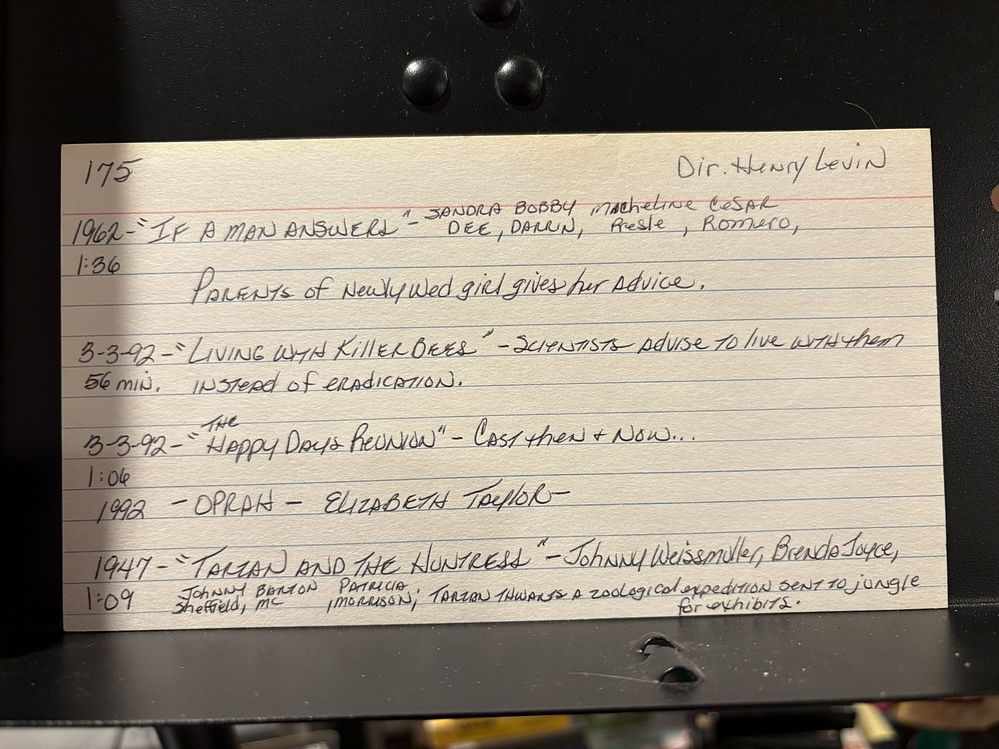 175 Dir. Henry Levin
SANDRA BOBBY Micheline CeSAR
1962-"IF A MAN ANSWERS"- DEE, DARRIN, Presle, Romero,
1:36
PARENTS of Newlywed girl gives her Advice.
3-3-92-"LIVING WITH KILLER BEES"-SCIENTISTS ADVISE TO live WITH them
56 min. INSTEAD of ERADICATION.
THE
3-3-92-"HAPPY DAYS REUNION"- CAST then + NOW...
1:06
1992 - OPRAH - ELIZABETH TAYLOR-
1947-"TARZAN AND THE HUNTRESS"-Johnny Weissmuller, Brenda Joyce,
JOHNNY BARTON PATRICIA
1:09 Sheffield, MC ,MORRISON; TARZAN THWARTS A zoological expedition SENT TO jungle
for exhibits.